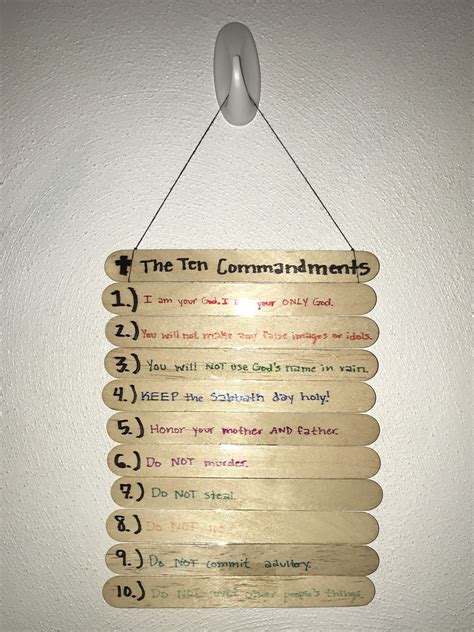 ✝ The Ten Commandments
1.) I am your God. I am your ONLY God.
2.) You will not make any false images or idols.
3.) You will NOT use God's name in vain.
4.) KEEP the Sabbath day holy!
5.) Honor your mother AND father.
6.) Do NOT murder.
7.) Do NOT steal.
8.) Do NOT
9.) Do NOT commit adultery.
10.) Do NOT covet other people's things.